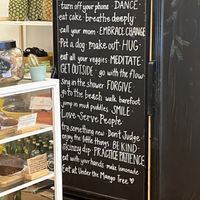 · turn off your phone · DANCE ·
eat cake · breathe deeply ·
call your mom · EMBRACE CHANGE
Pet a dog · make out · HUG ·
eat all your veggies · MEDITATE ·
GET OUTSIDE · go with the flow
sing in the shower · FORGIVE
go to the beach · walk barefoot
jump in mud puddles · SMILE ·
Love · Serve People ·
try something new · Don't Judge
enjoy the little things · BE KIND ·
skinny dip · PRACTICE PATIENCE
eat with your hands · make lemonade
Eat at Under the Mango Tree ♥